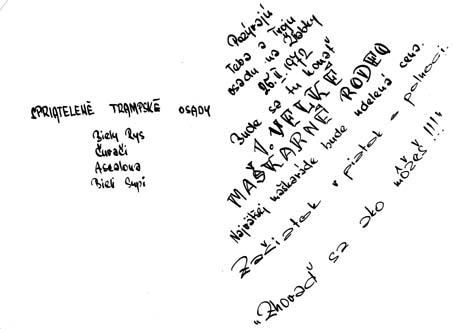 SPRIATELENÉ TRAMPSKÉ OSADY
Biely Rys
Čuráči
Ascalona
Bieli Supi
Pozývajú
Teba a Tvoju
osadu na Žlabky
26.II.1972
Bude sa tu konať
1. VEĽKÉ
MAŠKARNÉ RODEO
Najväčšej maškaráde bude udelená cena.
Začiatok v piatok - polnoci.
"Zhorad" sa ako môžeš !!!!